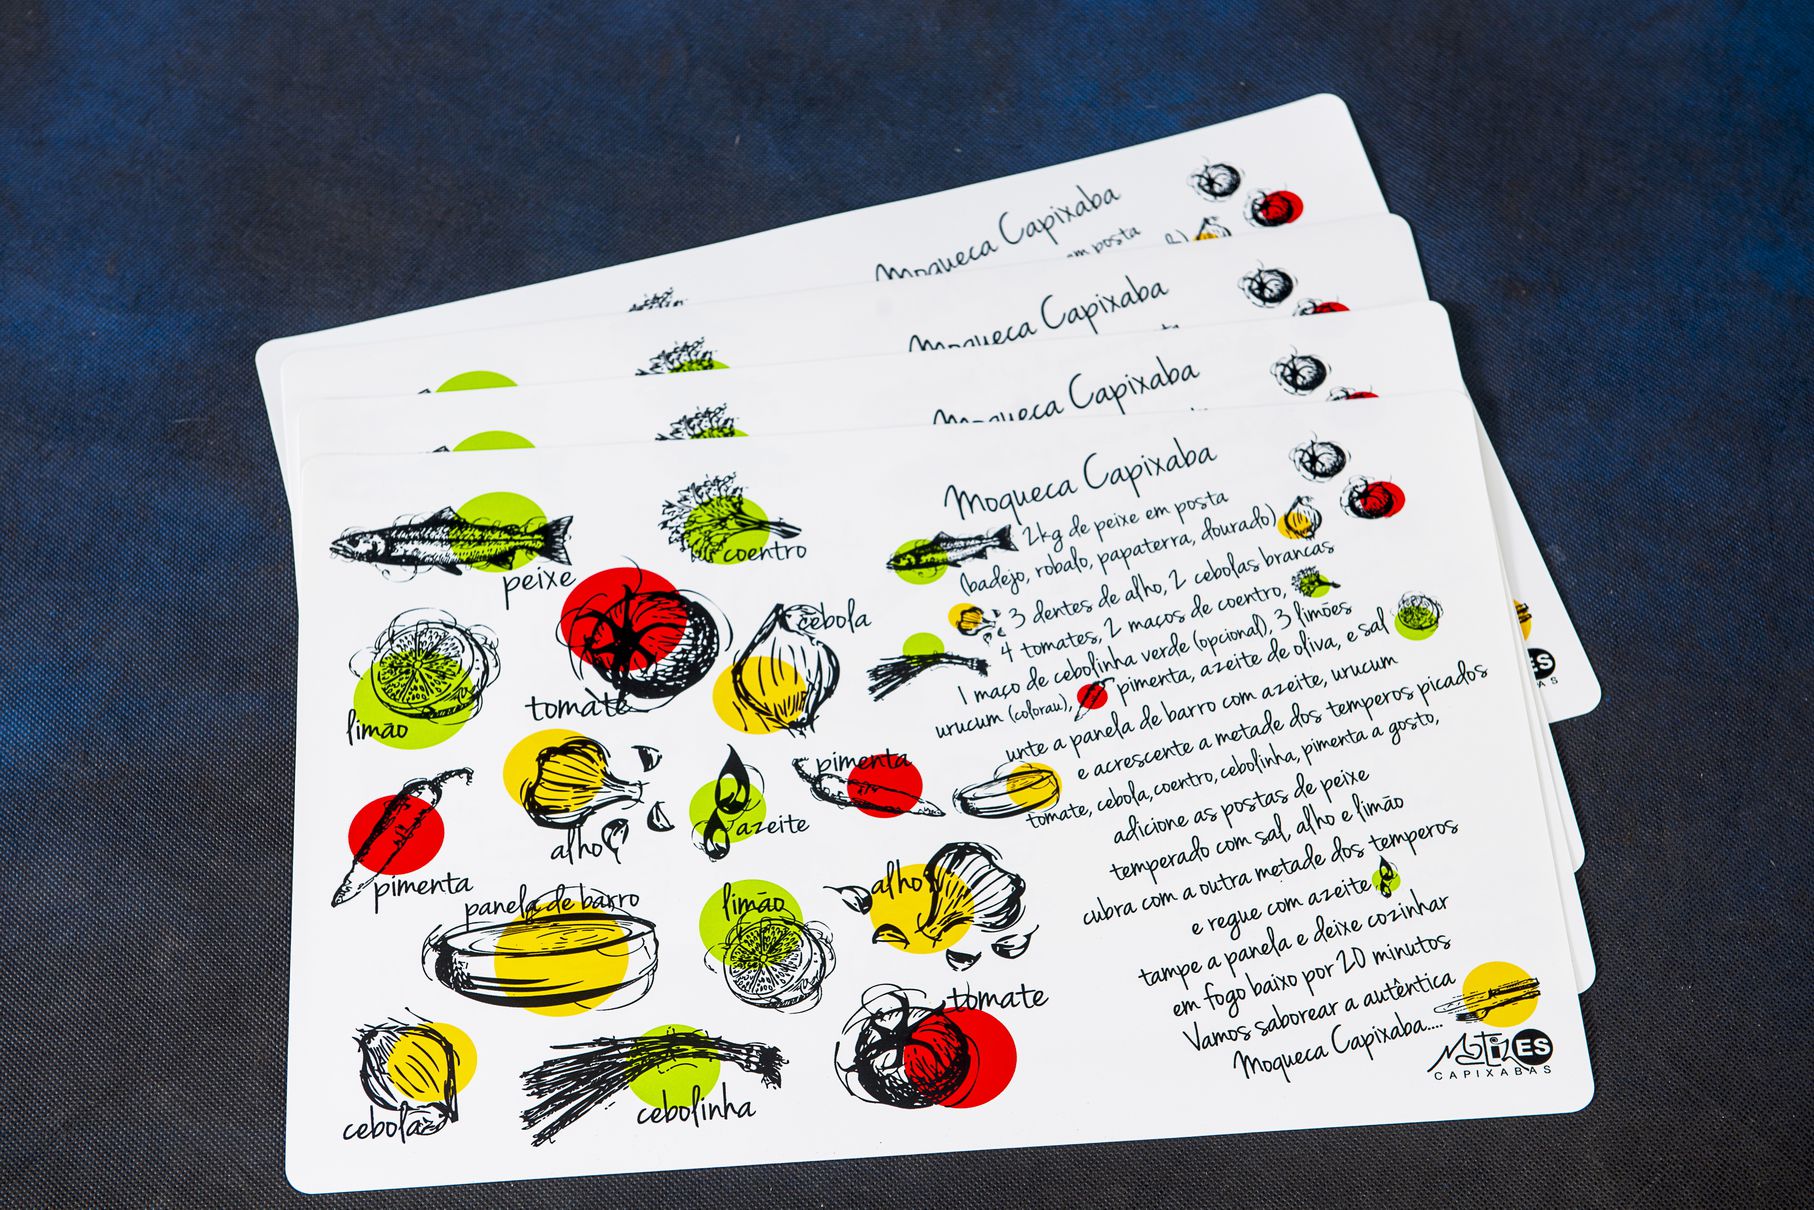 Moqueca Capixaba
em posta
Moqueca Capixaba
Moqueca Capixaba
Moqueca Capixaba
2kg de peixe em posta
(badejo, robalo, papaterra, dourado)
3 dentes de alho, 2 cebolas brancas
4 tomates, 2 maços de coentro,
1 maço de cebolinha verde (opcional), 3 limões
urucum (colorau), pimenta, azeite de oliva, e sal
unte a panela de barro com azeite, urucum
e acrescente a metade dos temperos picados
tomate, cebola, coentro, cebolinha, pimenta a gosto,
adicione as postas de peixe
temperado com sal, alho e limão
cubra com a outra metade dos temperos
e regue com azeite
tampe a panela e deixe cozinhar
em fogo baixo por 20 minutos
Vamos saborear a autêntica
Moqueca Capixaba....
MatizES
CAPIXABAS
peixe
coentro
limão
tomate
cebola
pimenta
alho
azeite
pimenta
panela de barro
limão
alho
cebola
cebolinha
tomate
ES